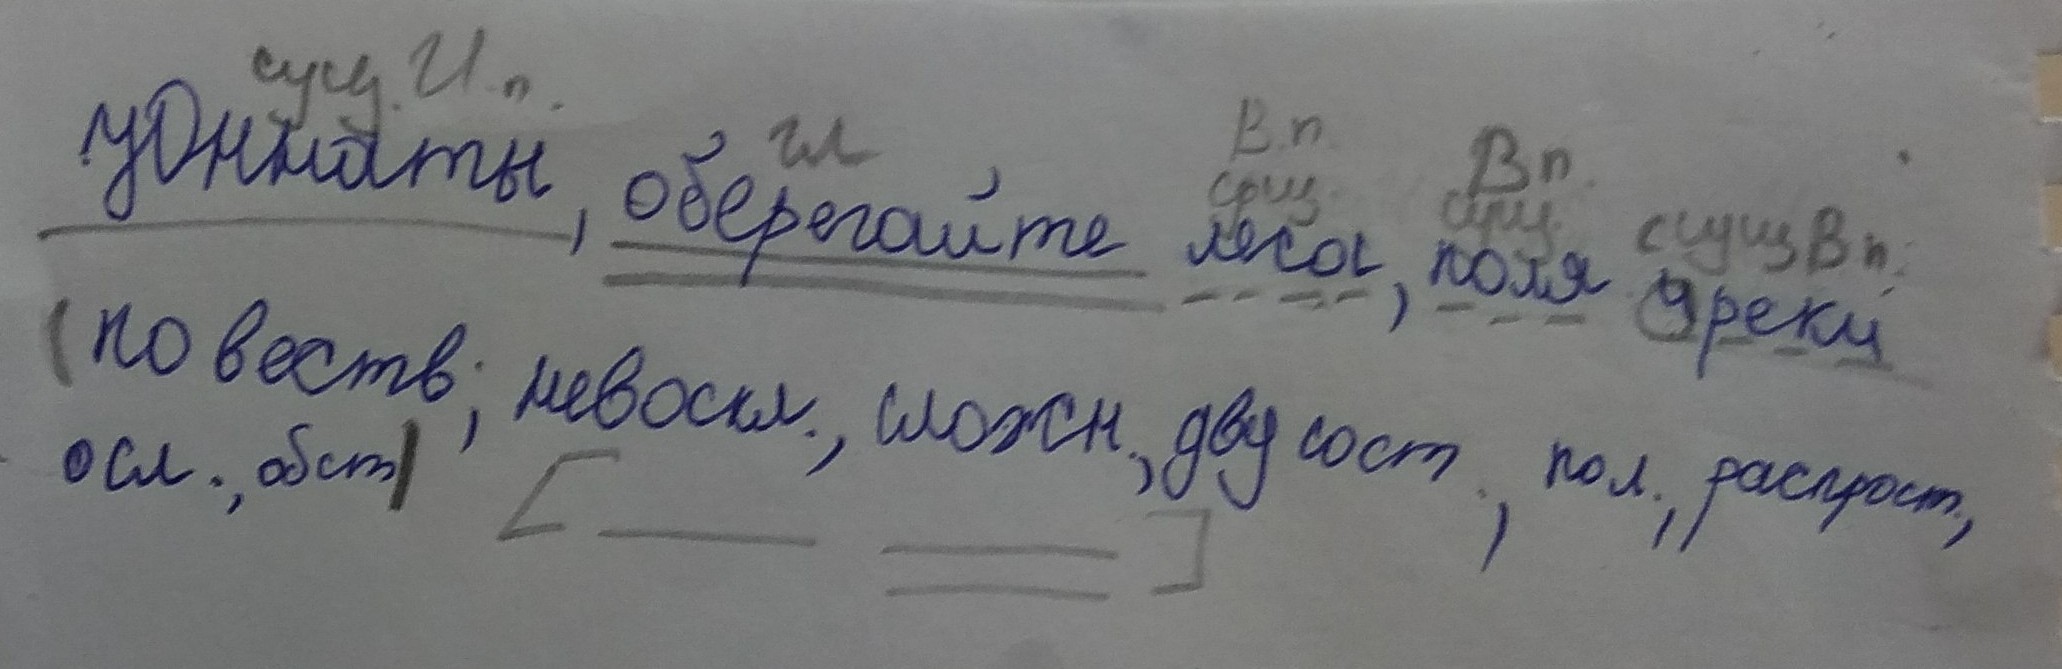 сущ. И.п. гл В.п. В.п.
сущ. сущ. сущ В п.
Юннаты, оберегайте леса, поля и реки
(повеств., невоскл., сложн., двусост., пол., распрост.,
осл., обст)
[ ]